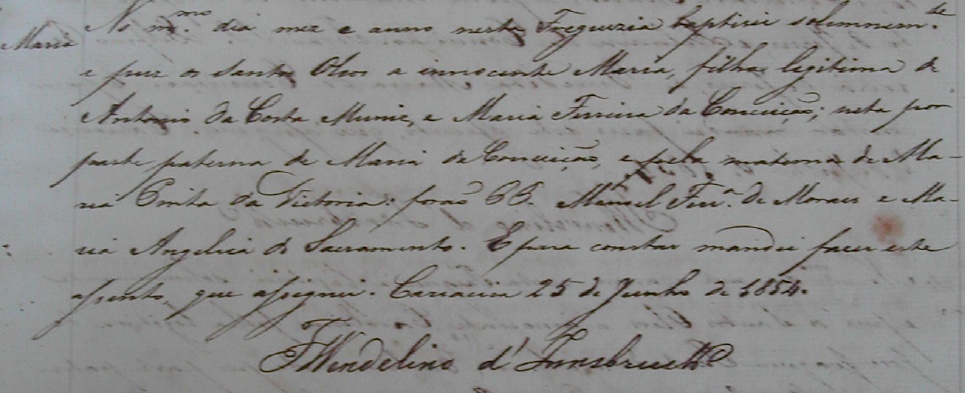 Maria No m.mo dia mez e anno nesta Freguezia baptisei solemnem.te
e puz os Santos Oleos a innocente Maria, filha legitima de
Antonio da Costa Muniz, e Maria Ferreira da Conceição; neta por
parte paterna de Maria da Conceição, e pela materna de Ma-
ria Pinta da Victoria: forão PP. Manoel Ferr.a de Moraes e Ma-
ria Angelica do Sacramento. E para constar mandei fazer este
assento, que assignei. Cariacica 25 de Junho de 1854.
F Wendelino d'Innsbruck